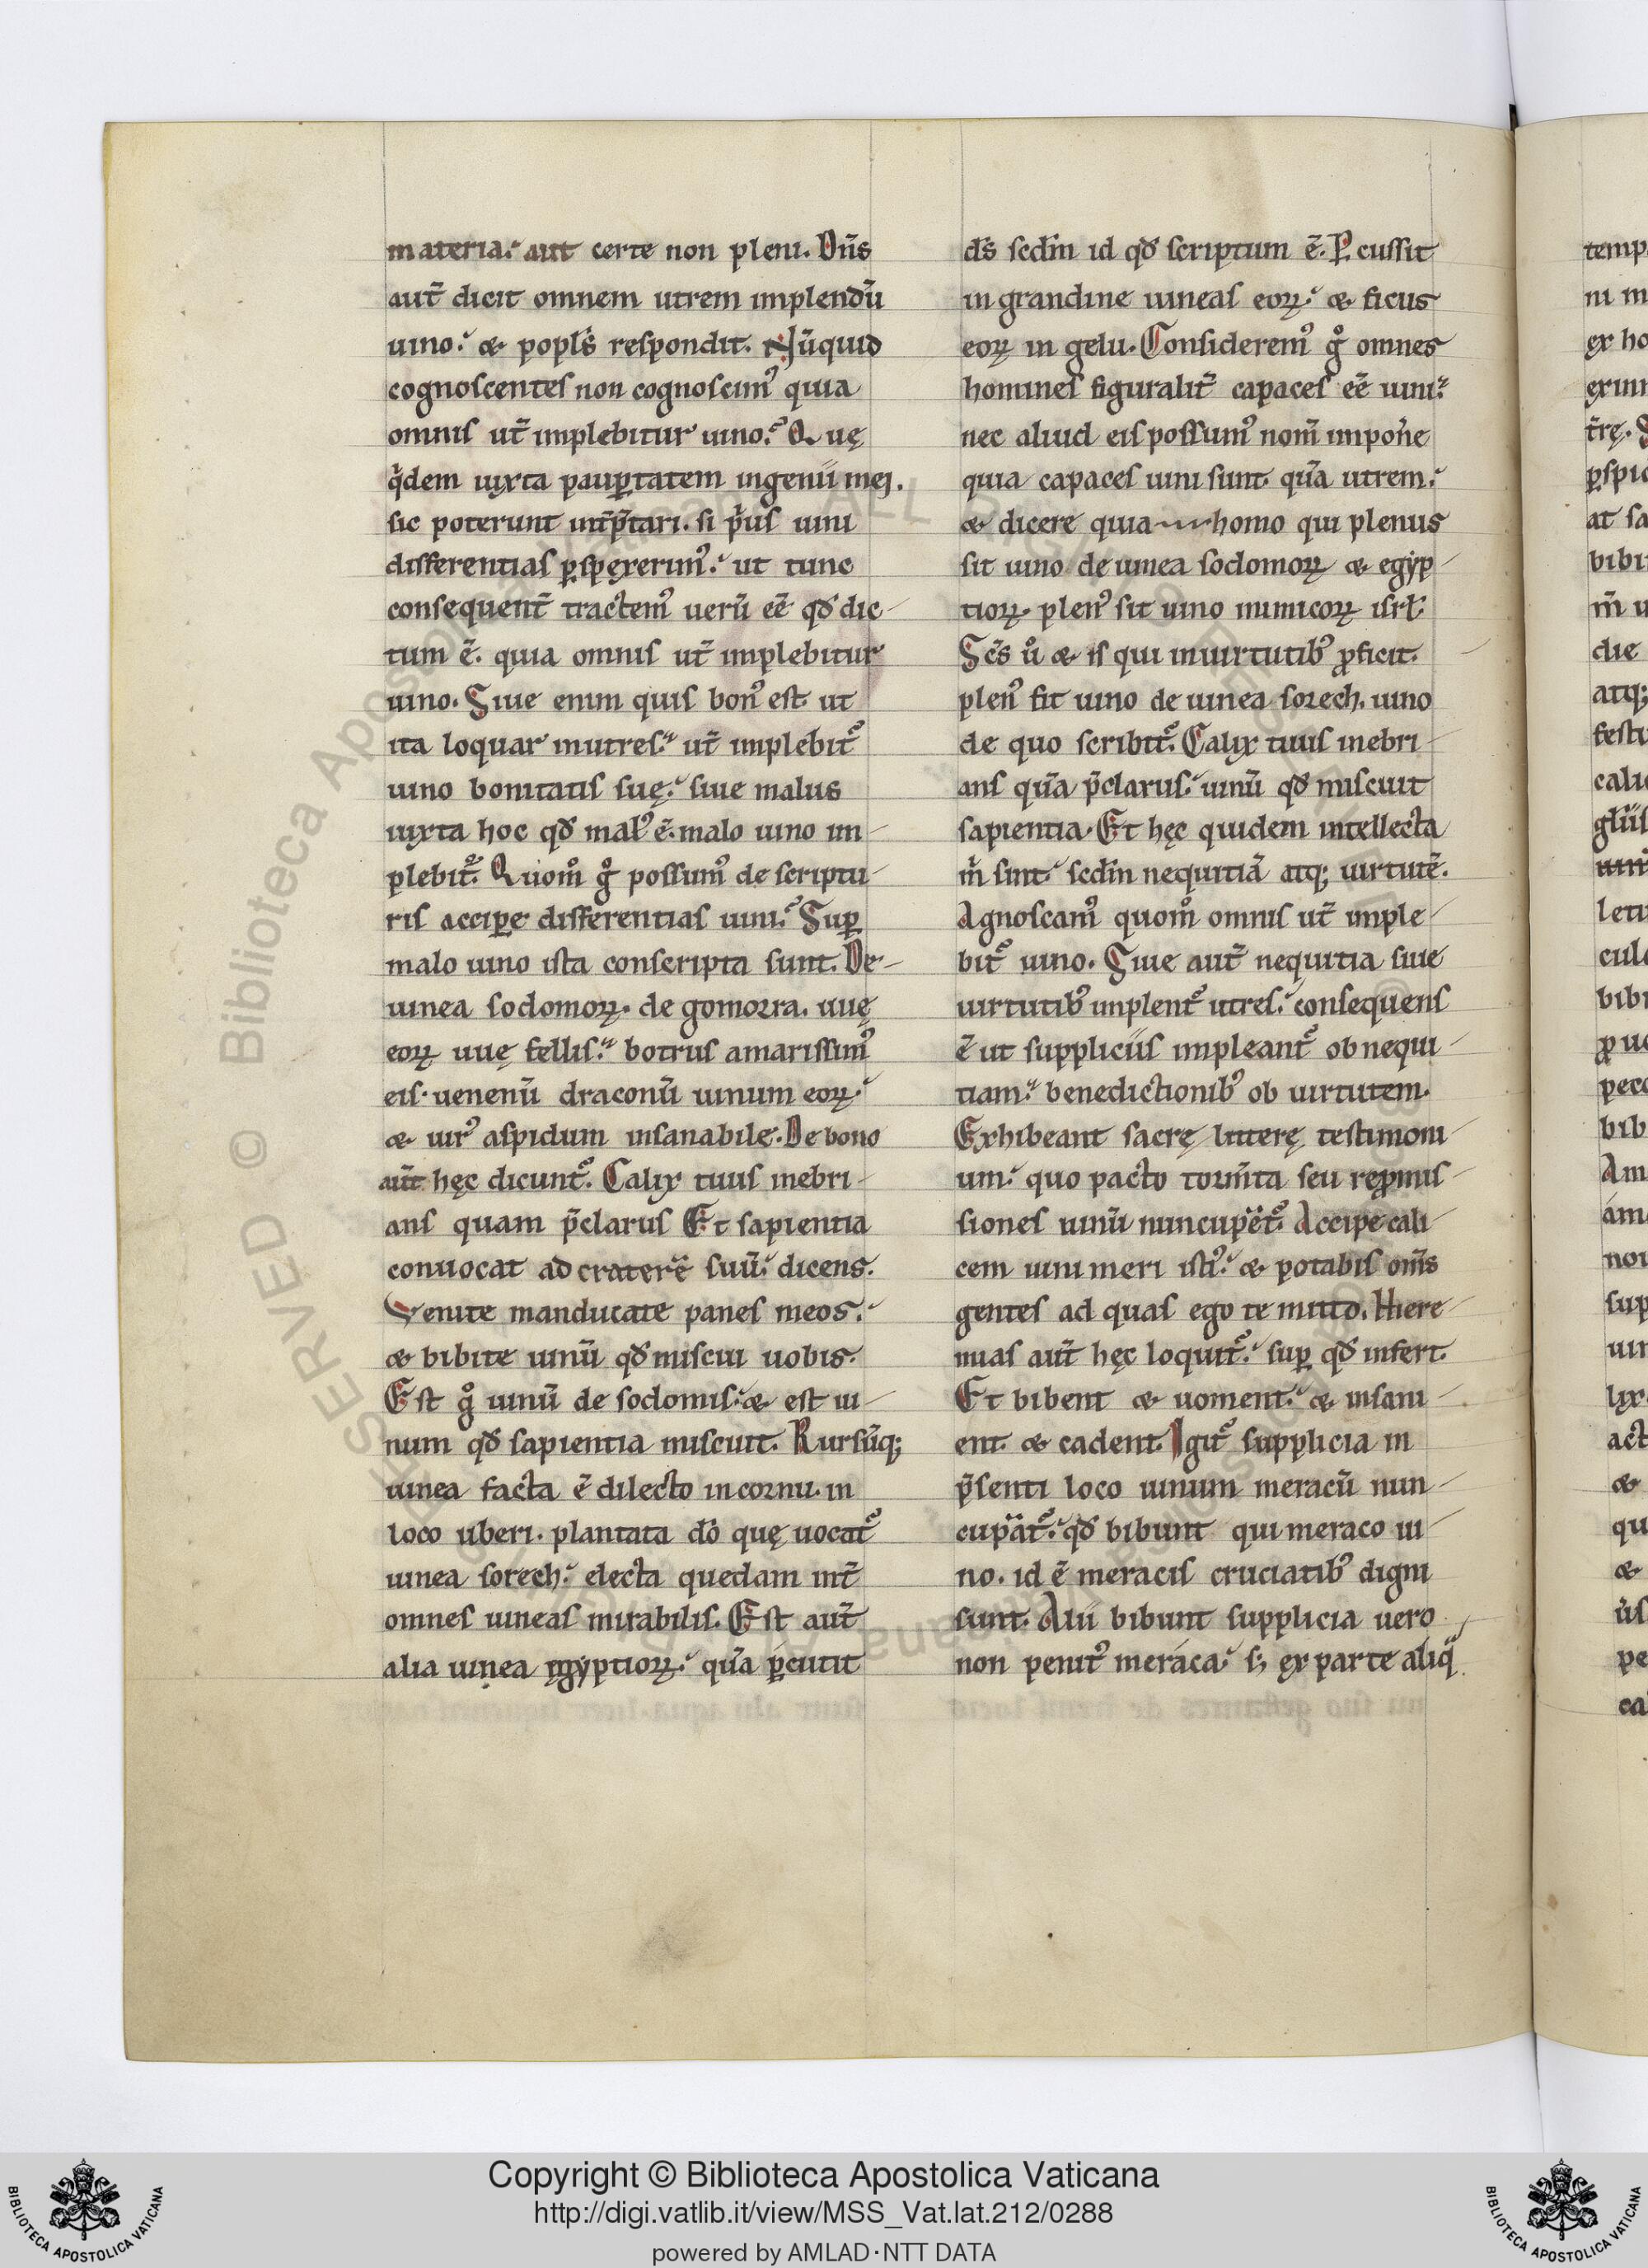 materia. aut certe non pleni. Dn̄s
aut̄ dicit omnem utrem implendū
uino. & popl's respondit. Nūquid
cognoscentes non cognoscimꝰ quia
omnis ut̄ implebitur uino. Quę
q'dem iuxta paup̱tatem ingenii mei.
sic poterunt int̄p̄tari. si p'us uini
differentias p̱spexerimꝰ. ut tunc
consequent̄ tractemꝰ uerū eē qd' dic-
tum ē. quia omnis ut̄ implebitur
uino. Siue enim quis bonꝰ est ut
ita loquar in utres. ut̄ implebit'
uino bonitatis suę. siue malus
iuxta hoc qd' malꝰ ē. malo uino im-
plebit'. Quom̊ g̊ possumꝰ de scriptu-
ris accip̱e differentias uini. Sup̱
malo uino ista conscripta sunt. De-
uinea sodomoꝝ. de gomorra. uuę
eoꝝ uuę fellis. botrus amarissimꝰ
eis. uenenū draconū uinum eoꝝ.
& uirꝰ aspidum insanabile. De bono
aut̄ hęc dicunt'. Calix tuus inebri-
ans quam p̄clarus Et sapientia
conuocat ad craterē suū. dicens.
Venite manducate panes meos.
& bibite uinū qd' miscui uobis.
Est g̊ uinū de sodomis. & est ui-
num qd' sapientia miscuit. Rursūq;
uinea facta ē dilecto in cornu. in
loco uberi. plantata do' quę uocat'
uinea sorech. electa quedam int̄
omnes uineas mirabilis. Est aut̄
alia uinea ęgyptioꝝ. quā p̱cutit
ds̄ scdm̄ id qd' scriptum ē. P̱cussit
in grandine uineas eoꝝ. & ficus
eoꝝ in gelu. Consideremꝰ g̊ omnes
homines figuralit̄ capaces eē uini.
nec aliud eis possumꝰ nom̄ impon'e
quia capaces uini sunt. quā utrem.
& dicere quia homo qui plenus
sit uino de uinea sodomoꝝ & egyp-
tioꝝ. plenꝰ sit uino inimicoꝝ isrl'.
Sc̄s ů & is qui in uirtutibꝰ ꝓficit.
plenꝰ fit uino de uinea sorech. uino
de quo scribit'. Calix tuus inebri-
ans quā p̄clarus. uinū qd' miscuit
sapientia. Et hęc quidem intellecta
m̄ sint. scdm̄ nequitiā atq; uirtutē.
Agnoscamꝰ quom̊ omnis ut̄ imple-
bit' uino. Siue aut̄ nequitia siue
uirtutibꝰ implent' utres. consequens
ē ut suppliciis impleant' ob nequi-
tiam. benedictionibꝰ ob uirtutem.
Exhibeant sacrę litterę testimoni-
um. quo pacto torm̄ta seu repmis-
siones uinū nuncupēt'. Accipe cali-
cem uini meri istiꝰ. & potabis om̄s
gentes ad quas ego te mitto. Hiere-
mias aut̄ hęc loquit'. sup̱ qd' infert.
Et bibent & uoment. & insani-
ent. & cadent. Igit' supplicia in
p̄senti loco uinum meracū nun-
cupāt'. qd' bibunt qui meraco ui-
no. id ē meracis cruciatibꝰ digni
sunt. Alii bibunt supplicia uero
non penitꝰ meráca. s; ex parte aliq̄
Copyright © Biblioteca Apostolica Vaticana
http://digi.vatlib.it/view/MSS_Vat.lat.212/0288
powered by AMLAD·NTT DATA
BIBLIOTECA APOSTOLICA VATICANA
BIBLIOTECA APOSTOLICA VATICANA